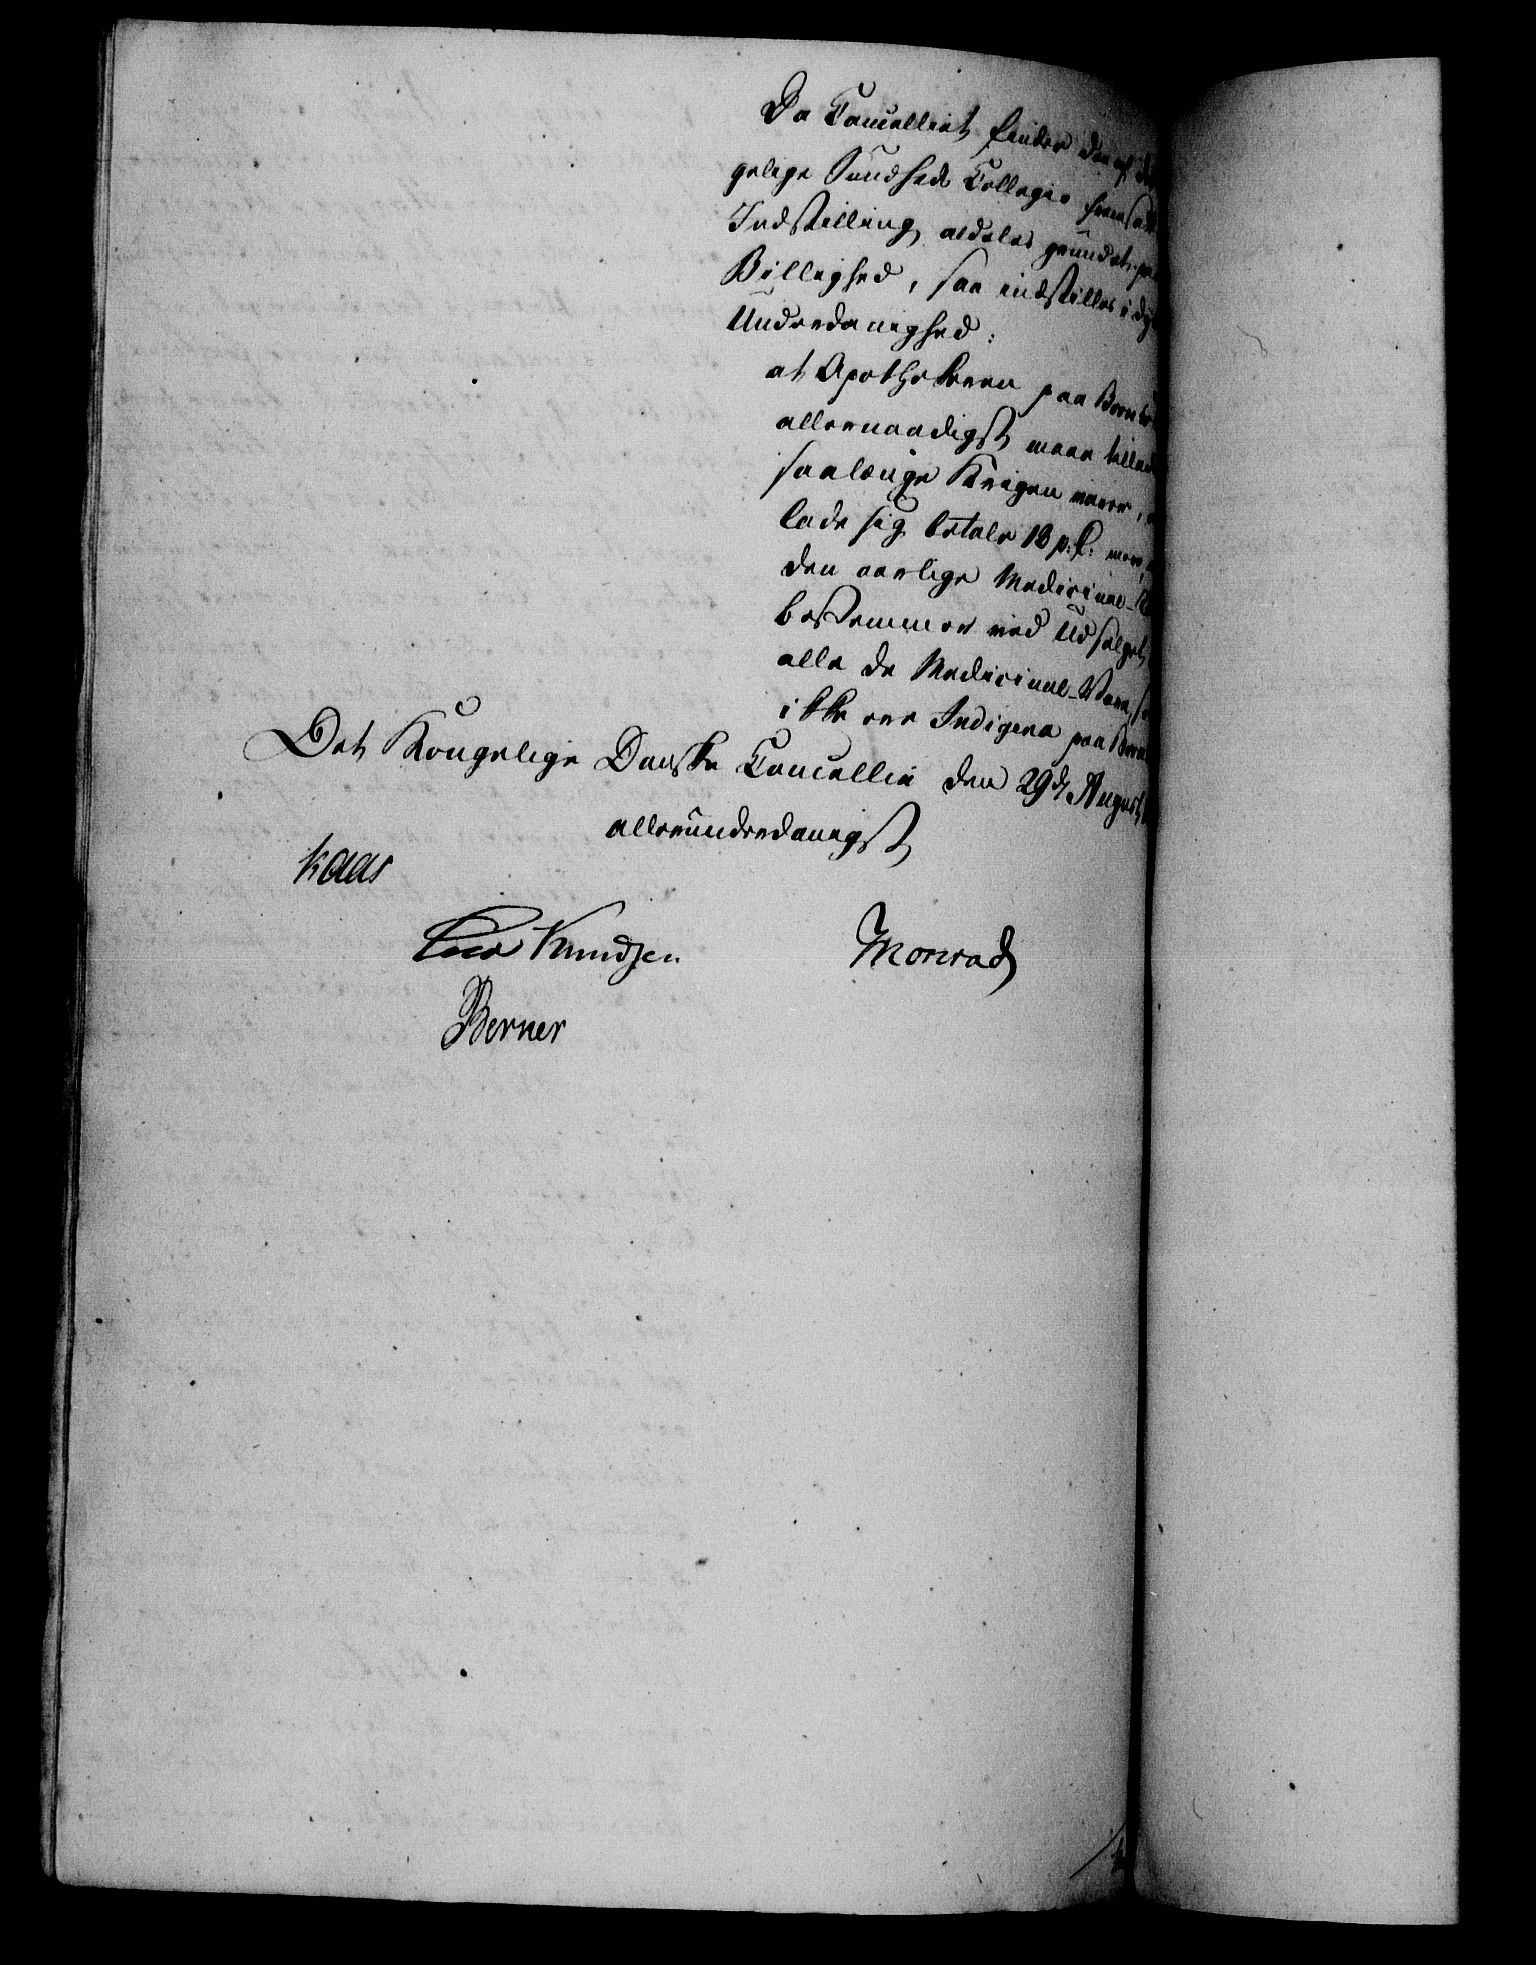 Da Cancelliet finder den af det
gelige Sundheds Collegio fremsatte
Indstilling aldeles grundet paa
Billighed, saa indstilles i dy
Underdanighed:
at Apothekeren paa Bornh
allernaadigst maae tillad
saalænge Krigen varer,
lade sig betale 12 p. C. mere,
den aarlige Medicinal-
bestemmer ved Udsalget
alle de Medicinal-Vare, so
ikke ere Indigena paa Born
Det Kongelige Danske Cancellie den 29d August
allerunderdanigst
Kaas
Cold Knudsen Monrad
Berner